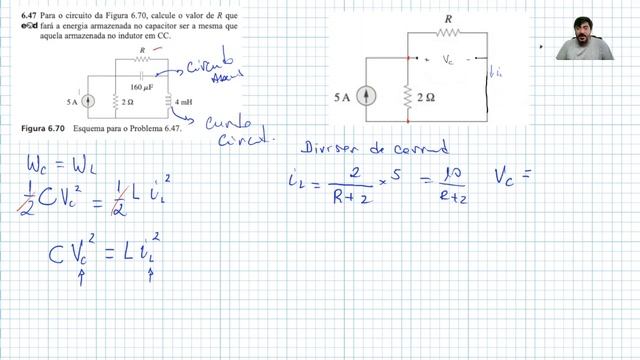 6.47 Para o circuito da Figura 6.70, calcule o valor de R que
fará a energia armazenada no capacitor ser a mesma que
aquela armazenada no indutor em CC.
R
160 μF
5 A
2 Ω
4 mH
Figura 6.70 Esquema para o Problema 6.47.
circuito
curto
circuit.
R
+ Vc -
↓iL
5 A
2 Ω
Wc = WL
1/2 C Vc² = 1/2 L iL²
C Vc² = L iL²
Divisor de
iL = 2/(R+2) × 5 = 10/(R+2)
Vc =